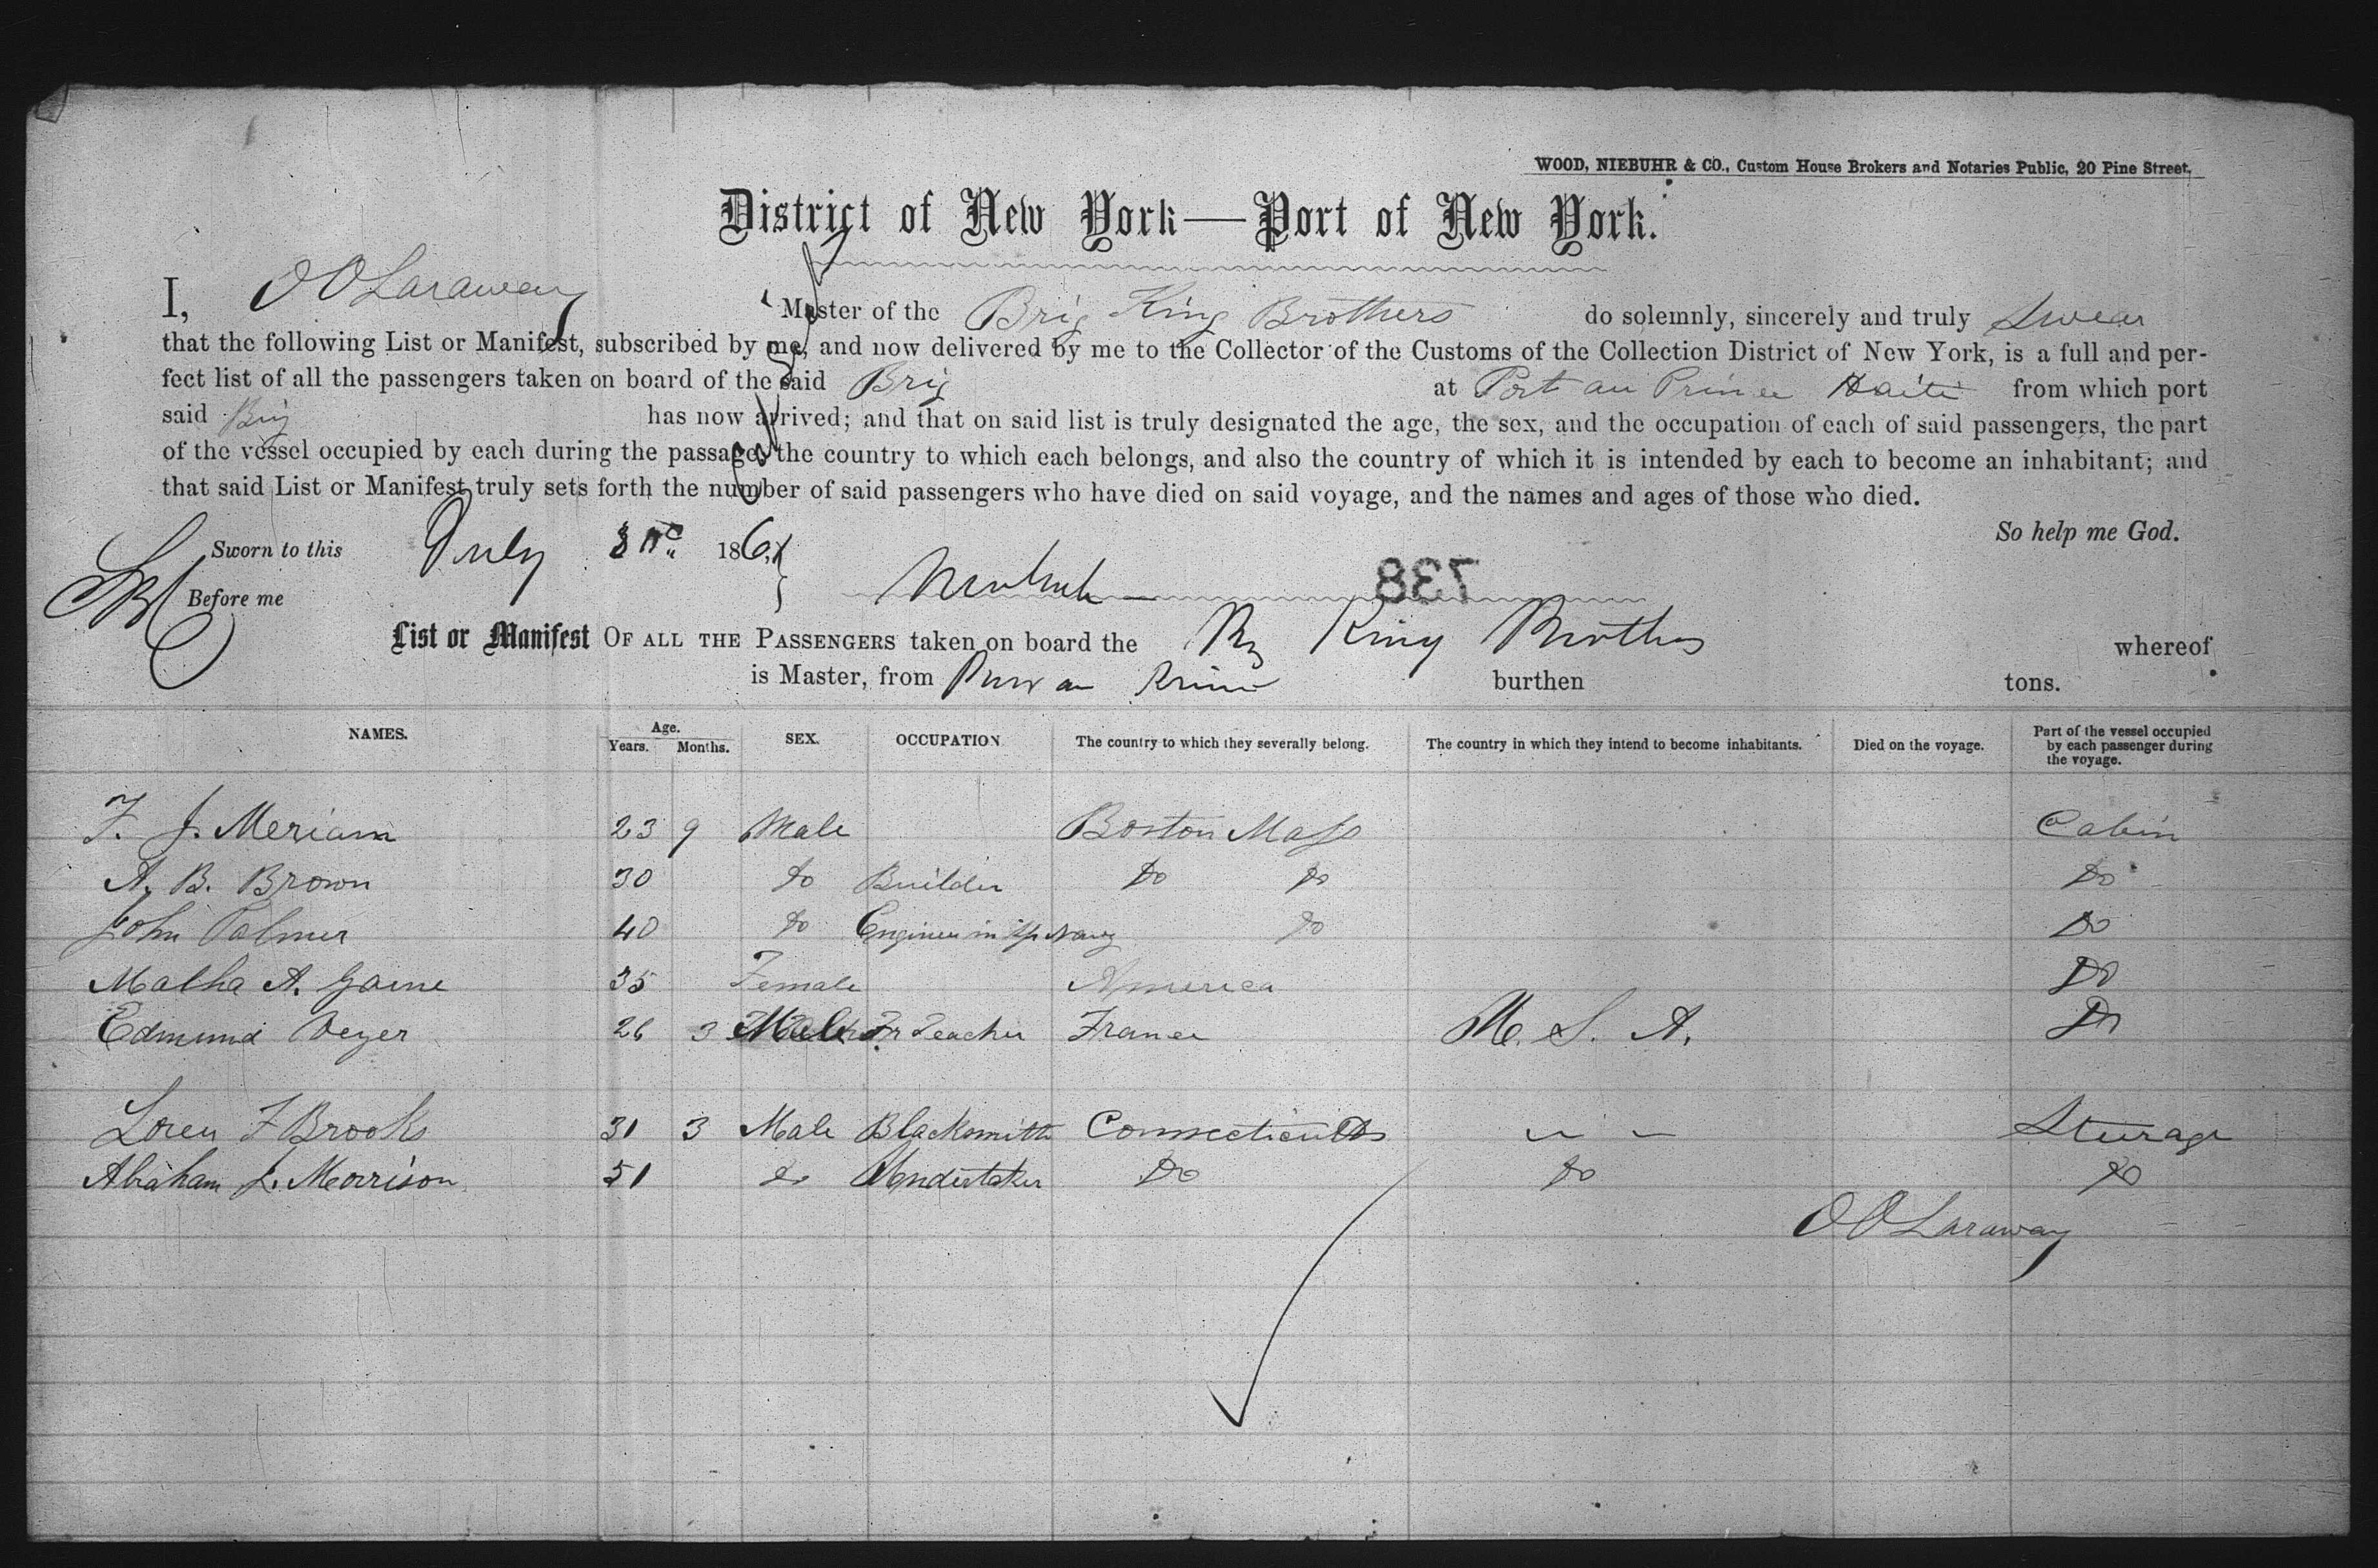 WOOD, NIEBUHR & CO., Custom House Brokers and Notaries Public, 20 Pine Street.
District of New York—Port of New York.
I, O O Laraway Master of the Brig King Brothers do solemnly, sincerely and truly Swear
that the following List or Manifest, subscribed by me, and now delivered by me to the Collector of the Customs of the Collection District of New York, is a full and per-
fect list of all the passengers taken on board of the said Brig at Port au Prince Haiti from which port
said Brig has now arrived; and that on said list is truly designated the age, the sex, and the occupation of each of said passengers, the part
of the vessel occupied by each during the passage, the country to which each belongs, and also the country of which it is intended by each to become an inhabitant; and
that said List or Manifest truly sets forth the number of said passengers who have died on said voyage, and the names and ages of those who died.
So help me God.
Sworn to this July 186
738
Before me
List or Manifest OF ALL THE PASSENGERS taken on board the King Brothers whereof
is Master, from Port au Prince burthen tons.
NAMES. Age. Years. Months. SEX. OCCUPATION The country to which they severally belong. The country in which they intend to become inhabitants. Died on the voyage. Part of the vessel occupied by each passenger during the voyage.
F. J. Meriam 23 9 Male Boston Mass Cabin
A. B. Brown 30 Do Builder Do Do Do
John Palmer 40 Do Engineer in Navy Do Do
Matha A. Gaine 35 Female America Do
Edmund Veyer 26 3 Male Fr Teacher France U. S. A. Do
Loren F Brooks 31 3 Male Blacksmith Connecticut " " Sturage
Abraham J. Morrison 51 Do Undertaker Do Do Do
O O Laraway